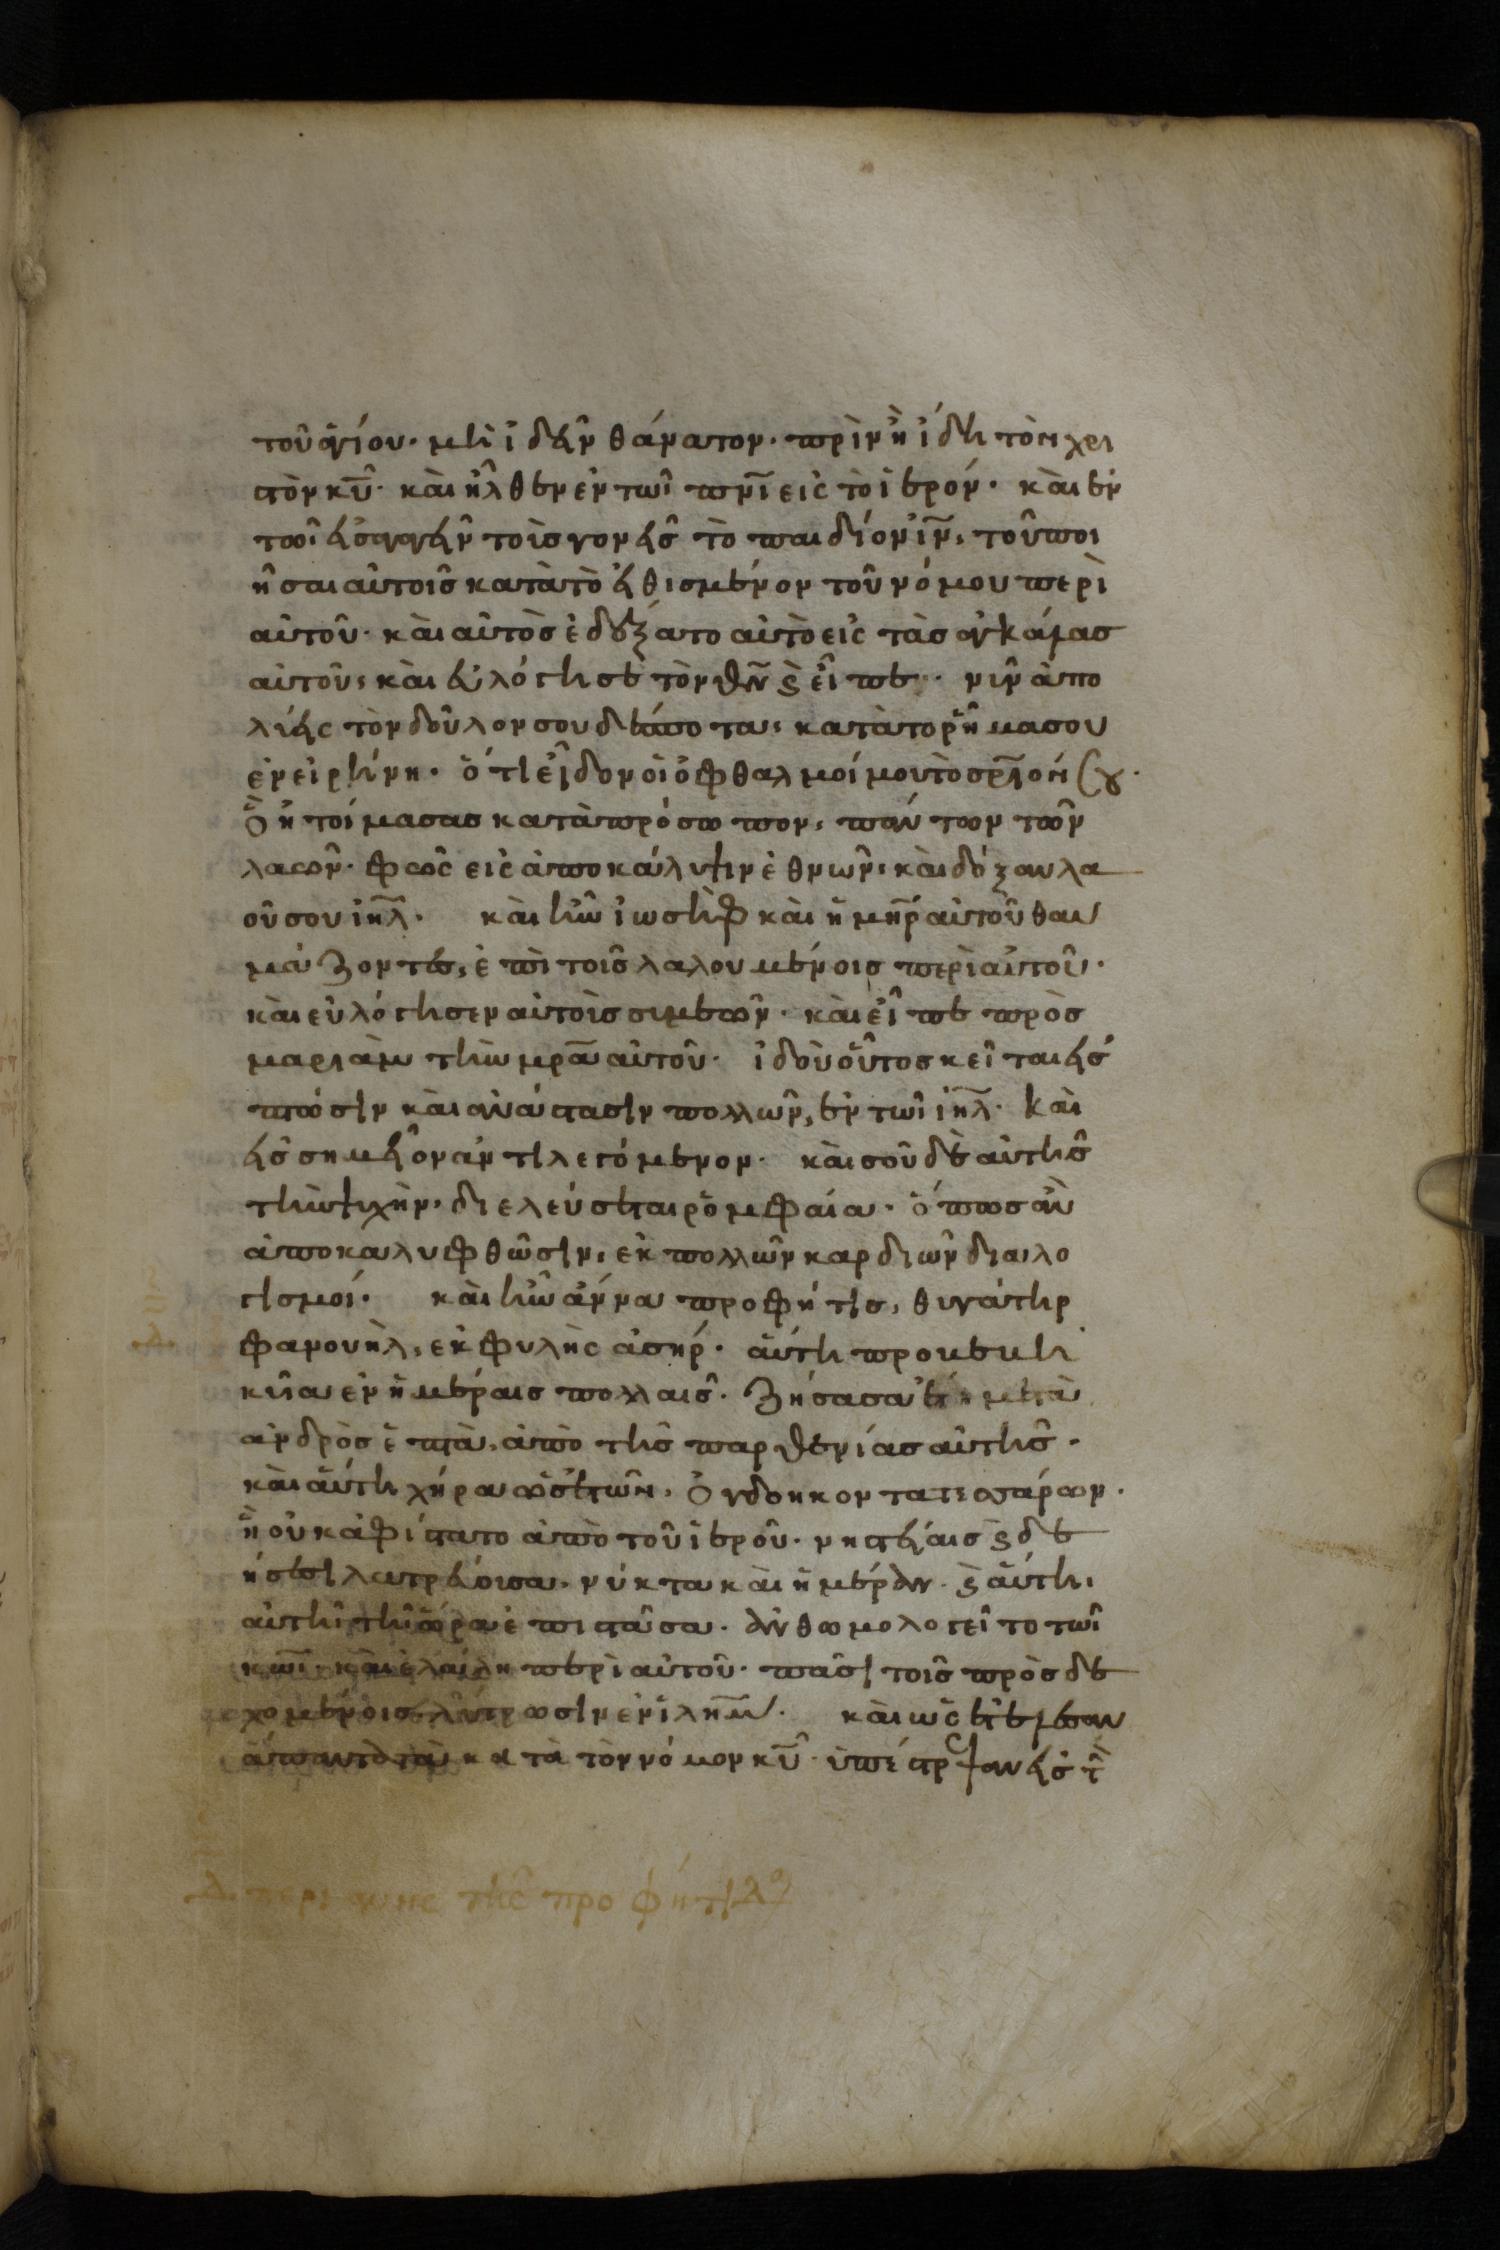 τοῦ ἁγίου· μὴ ἰδεῖν θάνατον· πρὶν ἢ ἴδη τὸν χρι
στὸν κῡ· καὶ ἦλθεν ἐν τῶι πνῑ εἰς τὸ ἱερόν· καὶ ἐν
τῶι εἰσαγαγεῖν τοὺς γονεῖς τὸ παιδίον ῑν, τοῦ ποι
ῆσαι αὐτοῖς κατὰ τὸ εἰθισμένον τοῦ νόμου περὶ
αὐτοῦ· καὶ αὐτὸς ἐδέξατο αὐτὸ εἰς τὰς ἀγκάλας
αὐτοῦ, καὶ εὐλόγησε τὸν θν̄ ϗ εἶπε· νῦν ἀπο
λύεις τὸν δοῦλον σου δέσποτα, κατὰ το ῥῆμα σου
ἐν εἰρήνη· ὅτι εἶδον οἱ ὀφθαλμοί μου τὸ σρ̄ιον σου·
ὃ ἡτοίμασας κατὰ πρόσωπον, πάντων τῶν
λαῶν· φῶς εἰς ἀποκάλυψιν ἐθνῶν, καὶ δόξαν λα
οῦ σου ιηλ̄· καὶ ἦν ἰωσὴφ καὶ ἡ μηρ̄ αὐτοῦ θαυ
μάζοντες, ἐπὶ τοῖς λαλουμένοις περὶ αὐτοῦ·
καὶ εὐλόγησεν αὐτοὺς συμεών· καὶ εἶπε πρὸς
μαριὰμ τὴν μρᾱ αὐτοῦ· ἰδοὺ οὗτος κεῖται εἰς
πτῶσιν καὶ ἀνάστασιν πολλῶν, ἐν τῶι ιηλ̄· καὶ
εἰς σημεῖον ἀντιλεγόμενον· καὶ σοῦ δὲ αὐτῆς
τὴν ψυχὴν, διελεύσεται ῥομφαία· ὅπως ἂν
ἀποκαλυφθῶσιν, ἐκ πολλῶν καρδιῶν διαλο
γισμοί· καὶ ἦν ἄννα προφήτις, θυγάτηρ
φανουὴλ, ἐκ φυλῆς ἀσήρ· αὕτη προβεβη
κυῖα ἐν ἡμέραις πολλαῖς· ζήσασα ἔτη μετὰ
ἀνδρὸς ἑπτὰ, ἀπὸ τῆς παρθενίας αὐτῆς·
καὶ αὕτη χήρα ὡς ἐτῶν, ὀγδοηκοντατεσσάρων·
ἣ οὐκ ἀφίστατο ἀπὸ τοῦ ἱεροῦ· νηστείαις ϗ δε
ήσεσι λατρεύουσα, νύκτα καὶ ἡμέραν· ϗ αὕτη,
αὐτῆ τῆ ὥρα ἐπιστᾶσα· ἀνθωμολογεῖτο τῶι
κωῑ· καὶ ἐλάλη περὶ αὐτοῦ· πᾶσι τοῖς προσδε
χομένοις λύτρωσιν ἐν ἱλημ̄· καὶ ὡς ἐτέλεσαν
ἅπαντα τὰ κατὰ τὸν νόμον κῡ· ὑπέστρεψαν εἰς τὴν
Δ· περι αννης τῆς προφήτιδο